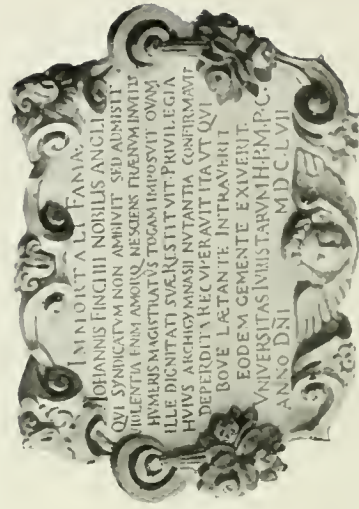 IMMORTALI FAMÆ
IOHANNIS FINCHII NOBILIS ANGLI
QVI SYNDICATVM NON AMBIVIT SED ADMISIT
VIOLENTIA ENIM AMORIQ NESCIENS FRÆNVM INVITIS
HVMERIS MAGISTRATVS TOGAM IMPOSVIT QVAM
ILLE DIGNITATI SVÆ RESTITVIT·PRIVILEGIA
HVIVS ARCHIGYMNASII NVTANTIA CONFIRMAVIT
DEPERDITA RECVPERAVIT ITA VT QVI
BOVE LÆTANTE INTRAVERIT
EODEM GEMENTE EXIVERIT.
VNIVERSITAS IVRISTARVM H·P·M·P·C·
ANNO DÑI MDCLVII